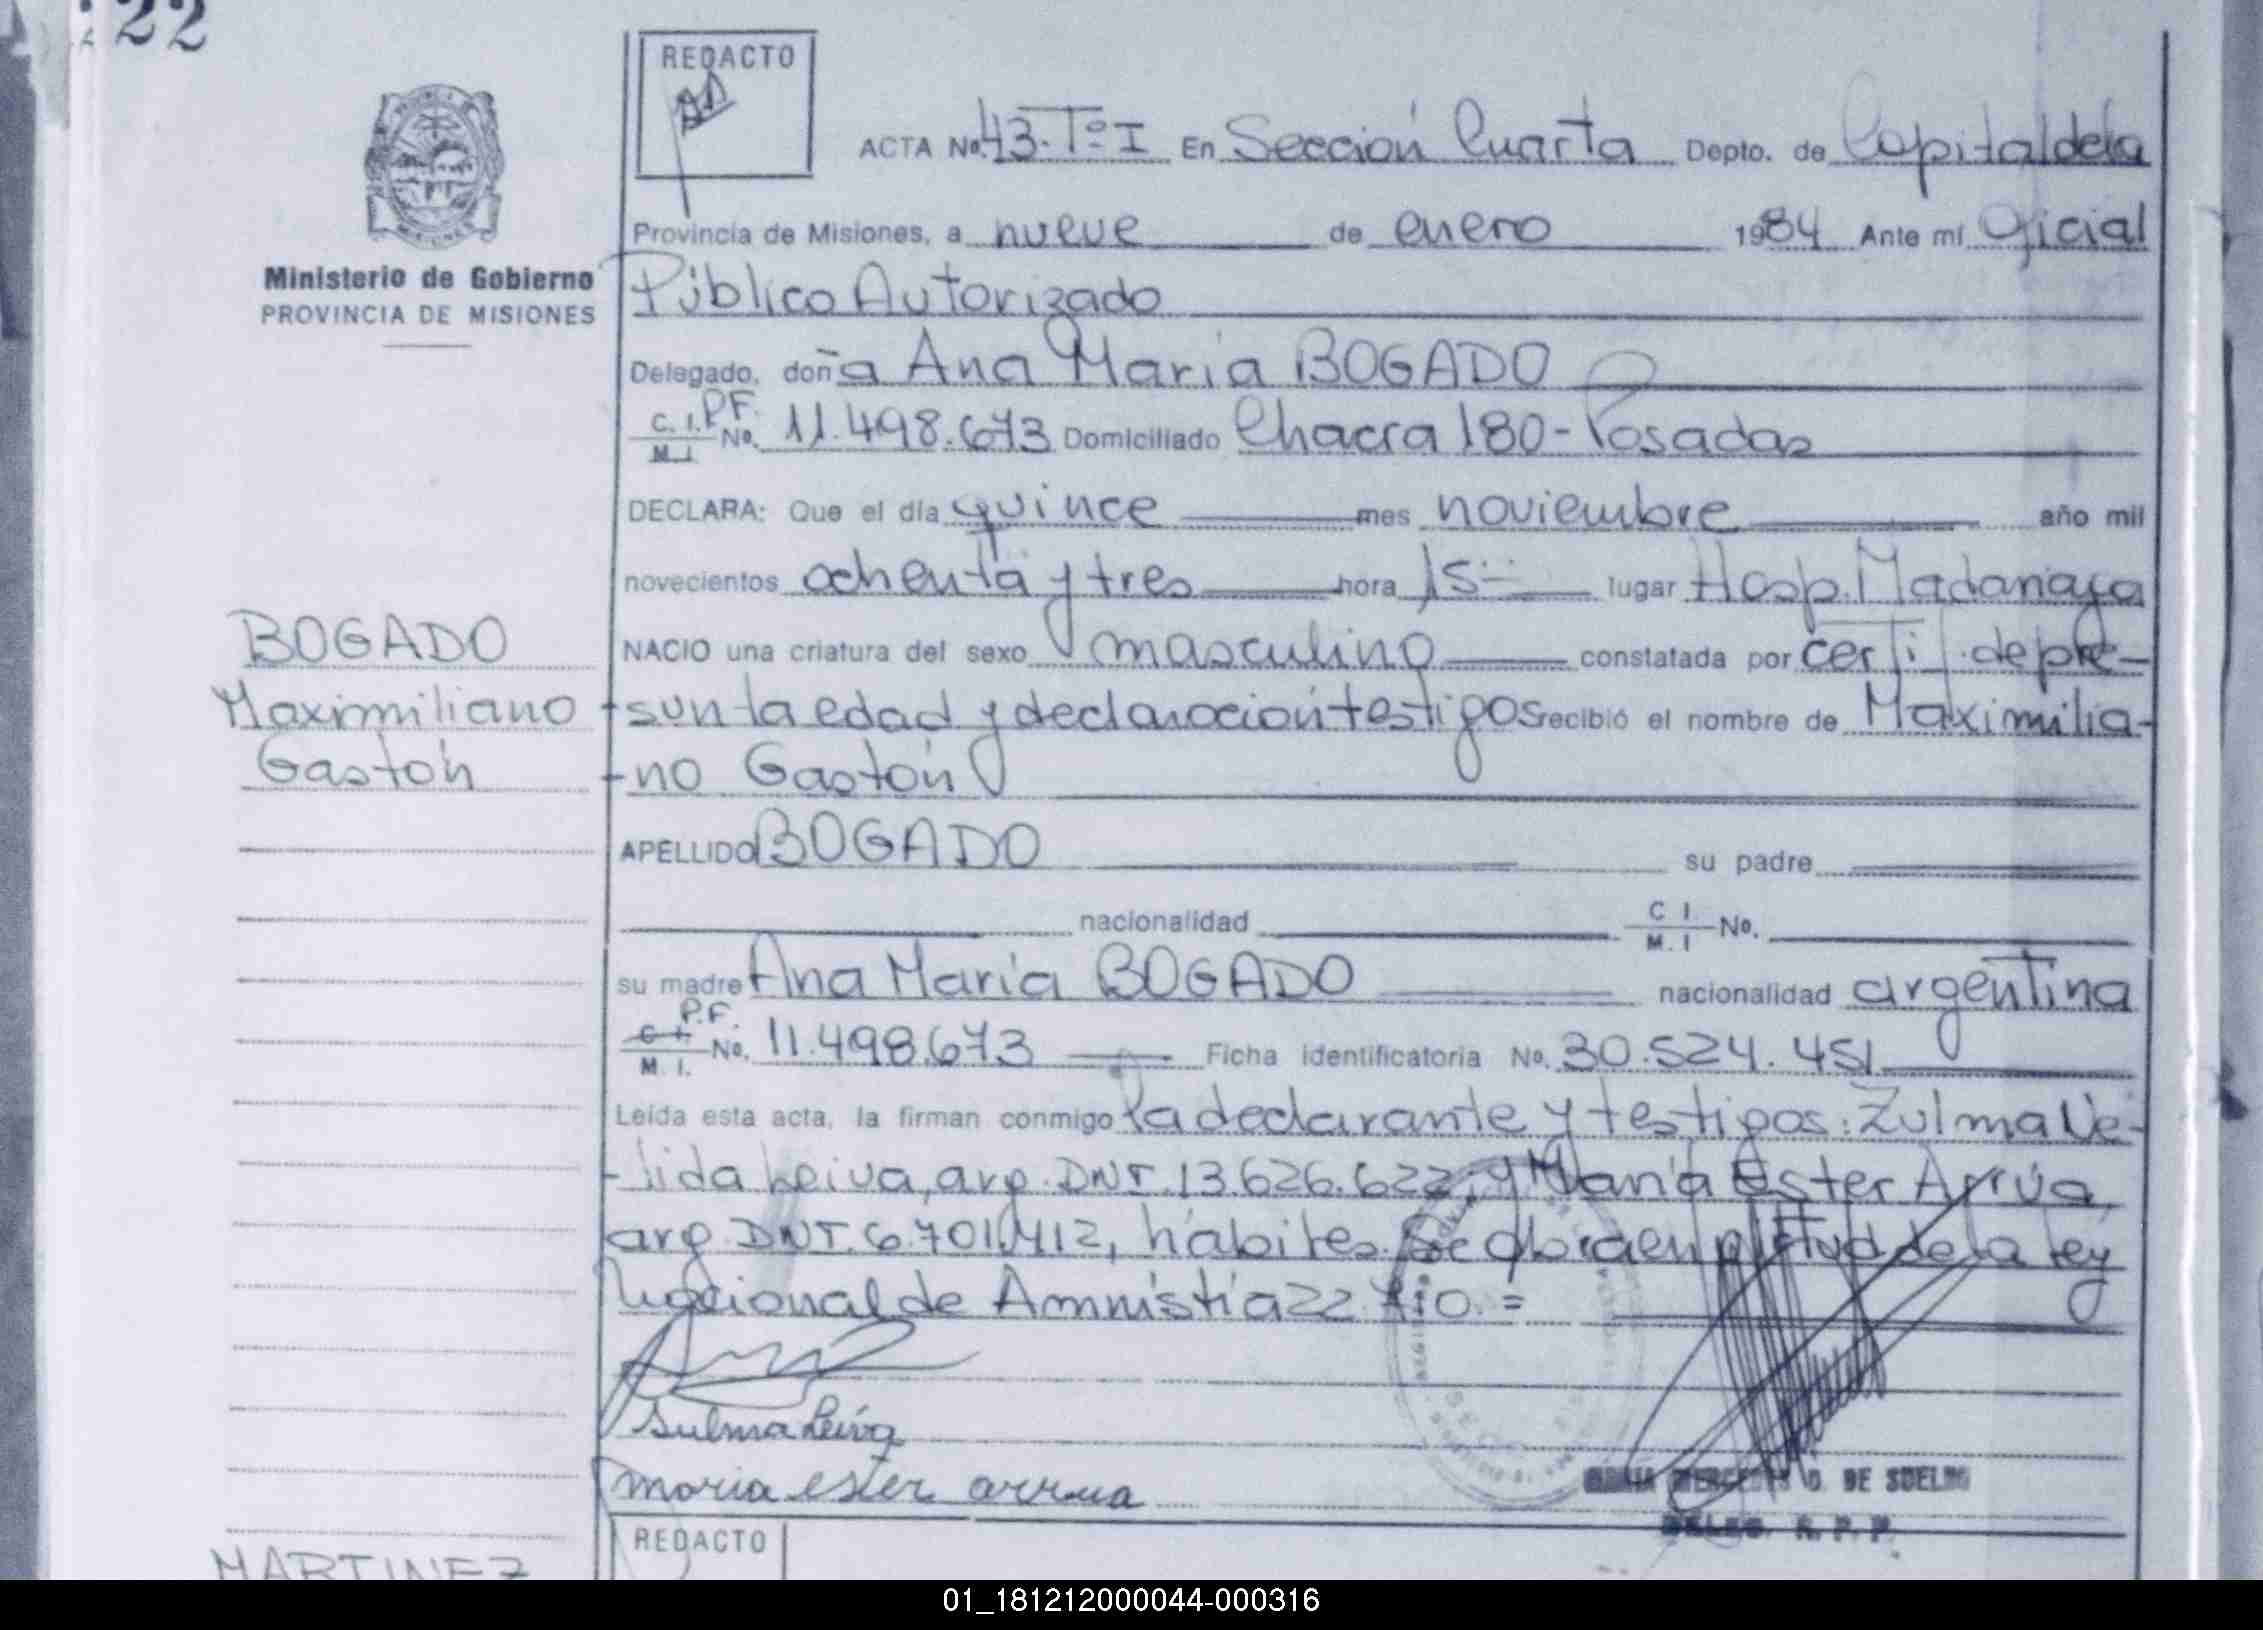 22
REDACTO
ACTA No. 43-Tº-I En Sección Cuarta Depto. de Capital de la
Provincia de Misiones, a nueve de enero 1984 Ante mí Oficial
Ministerio de Gobierno
PROVINCIA DE MISIONES
Público Autorizado
Delegado, doña Ana María BOGADO
C. I. P.F. M. I. No. 11.498.673 Domiciliado Chacra 180-Posadas
DECLARA: Que el día quince mes noviembre año mil
novecientos ochenta y tres hora 15 lugar Hosp. Madariaga
BOGADO
NACIO una criatura del sexo masculino constatada por certif. de pre-
Maximiliano
-sunta edad y declaración testigos recibió el nombre de Maximilia-
Gastón
-no Gastón
APELLIDO BOGADO su padre
nacionalidad C I. M. I No.
su madre Ana María BOGADO nacionalidad argentina
P.F.
C I M. I. No. 11.498.673 Ficha identificatoria No. 30.524.451
Leída esta acta, la firman conmigo la declarante y testigos: Zulma Ve-
-lida Leiva, arg. DNI. 13.626.622, y María Ester Arrúa,
arg. DNI. 6.701.412, hábiles. Se labra en virtud de la ley
Nacional de Amnistía 22.410.=
Sulma Leiva
maria ester arrua
MARIA MERCEDES D. DE SOELNO
DELEG. R. P. P.
REDACTO
MARTINEZ
01_181212000044-000316